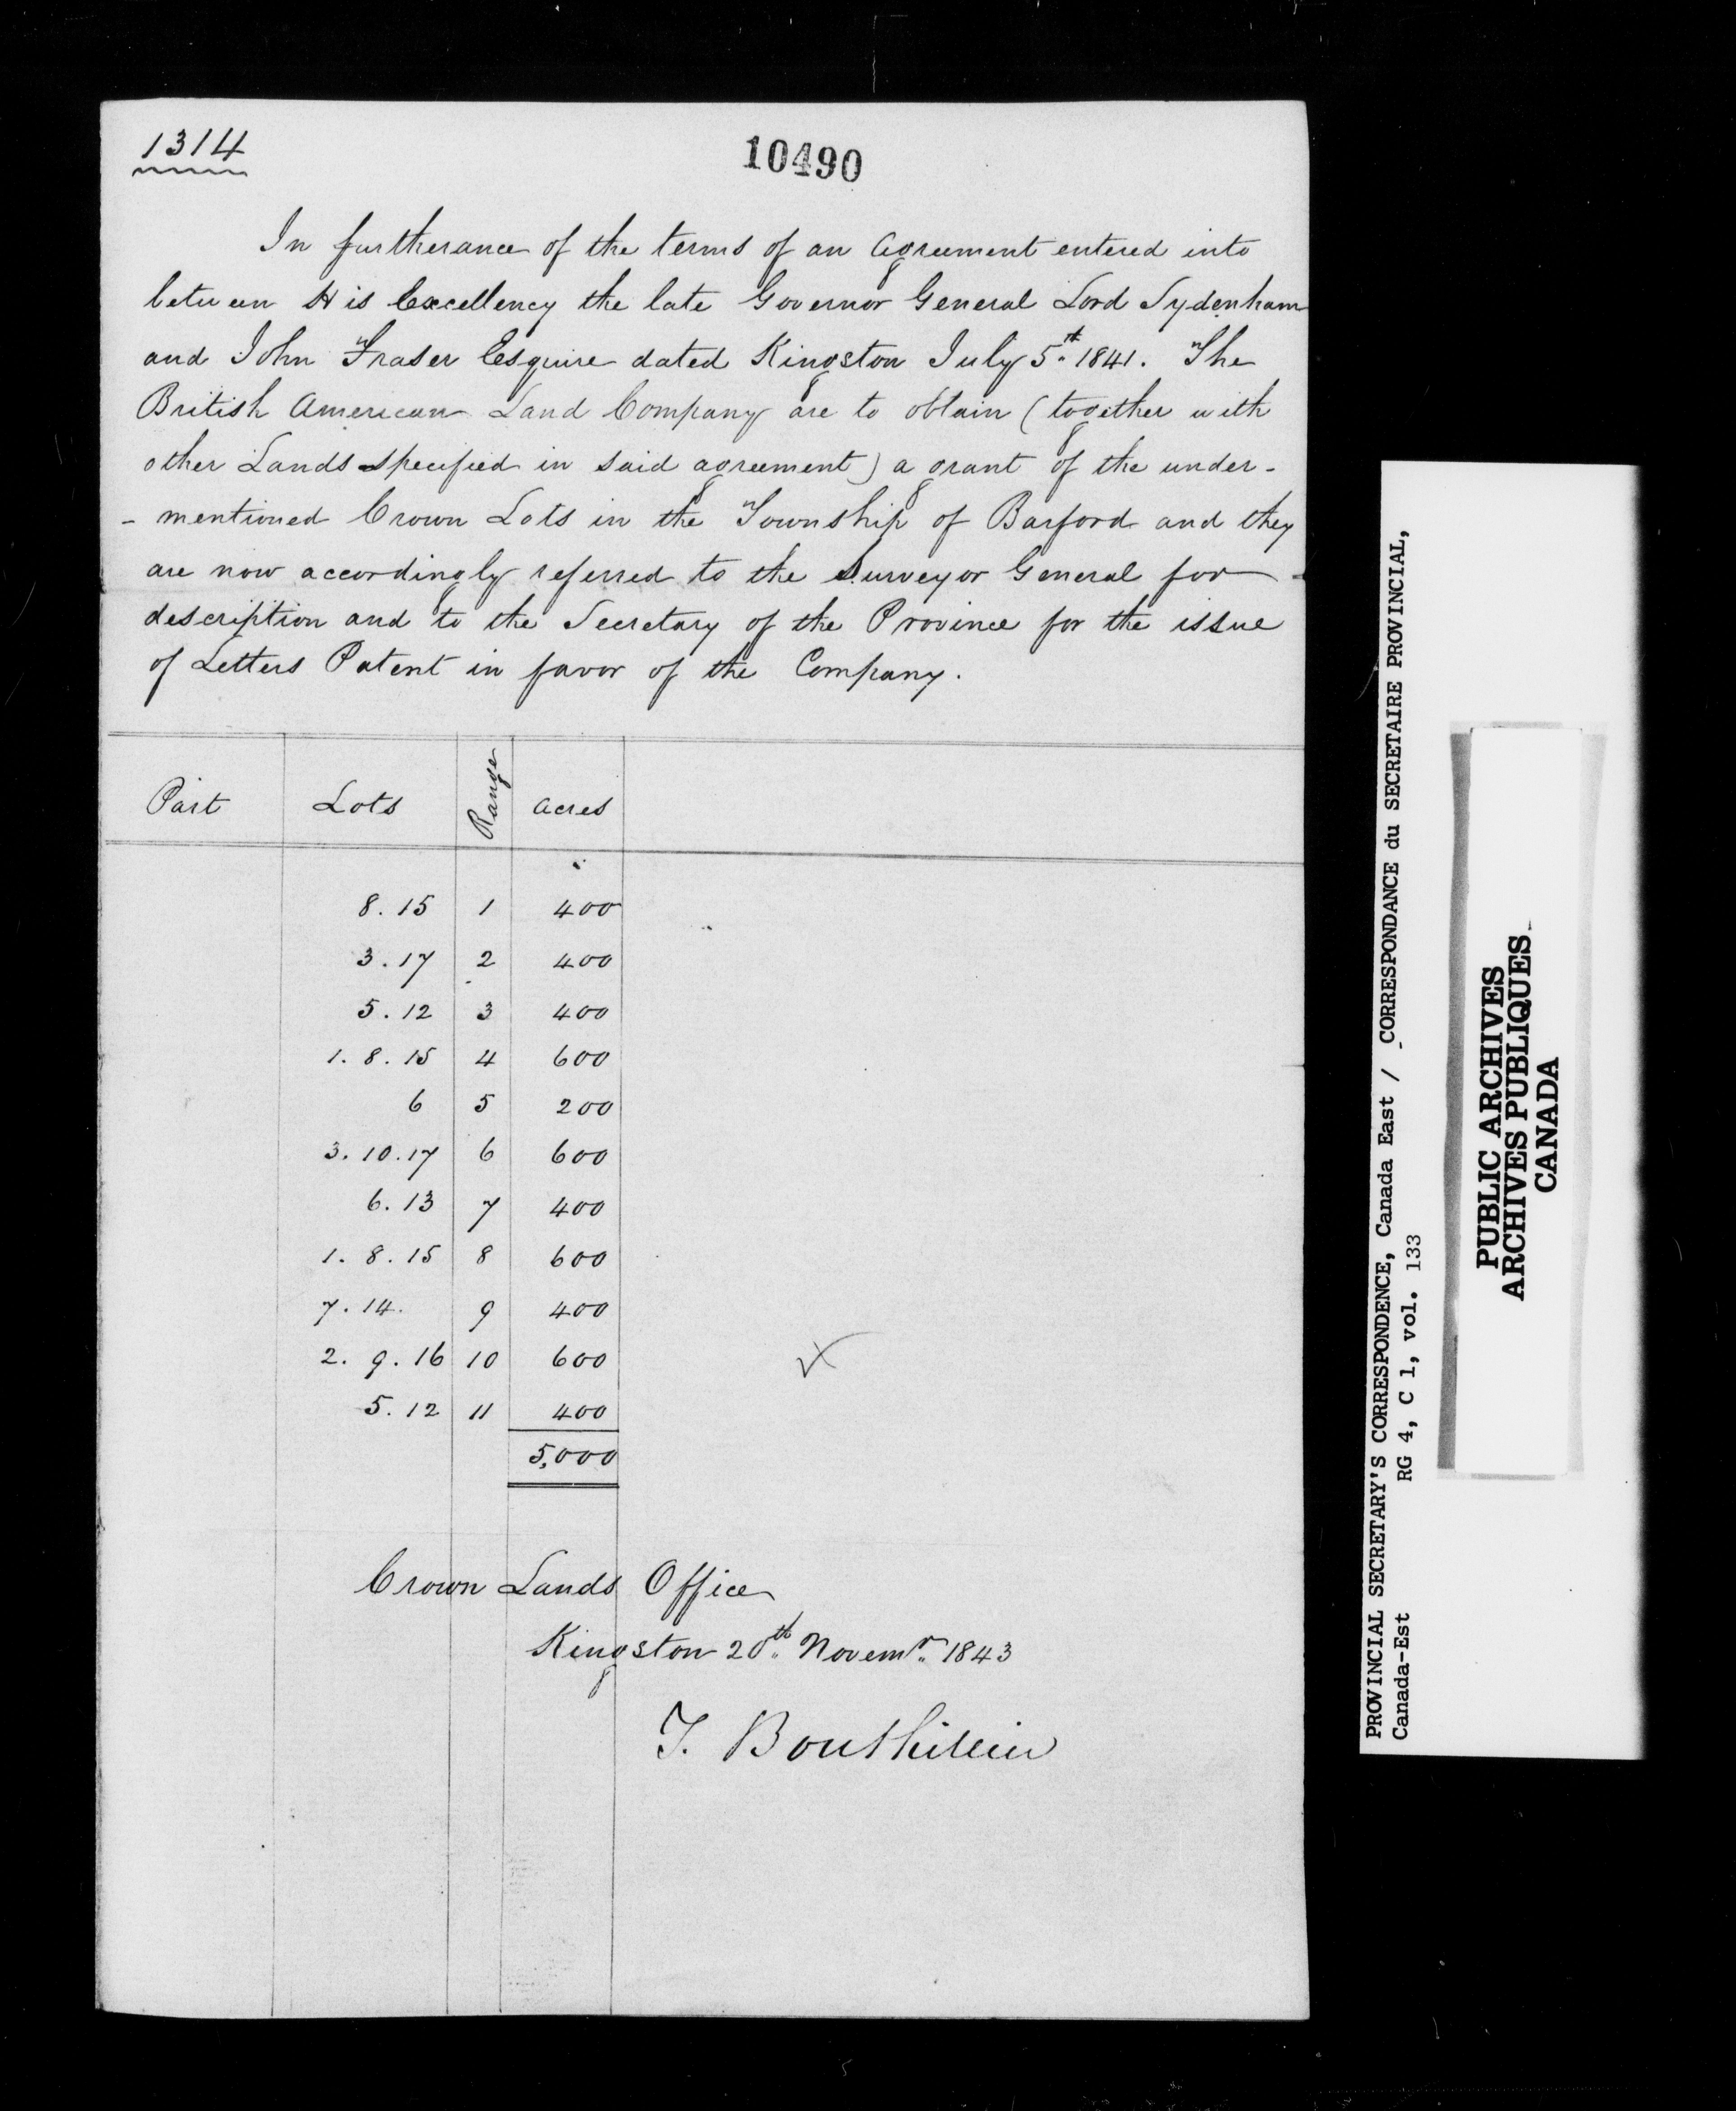 1314
10490
In furtherance of the terms of an Agreement entered into
between His Excellency the late Governor General Lord Sydenham
and John Fraser Esquire dated Kingston July 5th 1841. The
British American Land Company are to obtain (together with
other Lands specified in said agreement) a grant of the under-
- mentioned Crown Lots in the Township of Barford and they
are now accordingly referred to the Surveyor General for
description and to the Secretary of the Province for the issue
of Letters Patent in favor of the Company.
Part Lots Range Acres
8. 15 1 400
3. 17 2 400
5. 12 3 400
1. 8. 15 4 600
6 5 200
3. 10. 17 6 600
6. 13 7 400
1. 8. 15 8 600
7. 14. 9 400
2. 9. 16 10 600
5. 12 11 400
5,000
Crown Lands Office
Kingston 20th Novemr. 1843
T. Bouthillier
PROVINCIAL SECRETARY'S CORRESPONDENCE, Canada East / CORRESPONDANCE du SECRETAIRE PROVINCIAL,
Canada-Est RG 4, C 1, vol. 133
PUBLIC ARCHIVES
ARCHIVES PUBLIQUES
CANADA